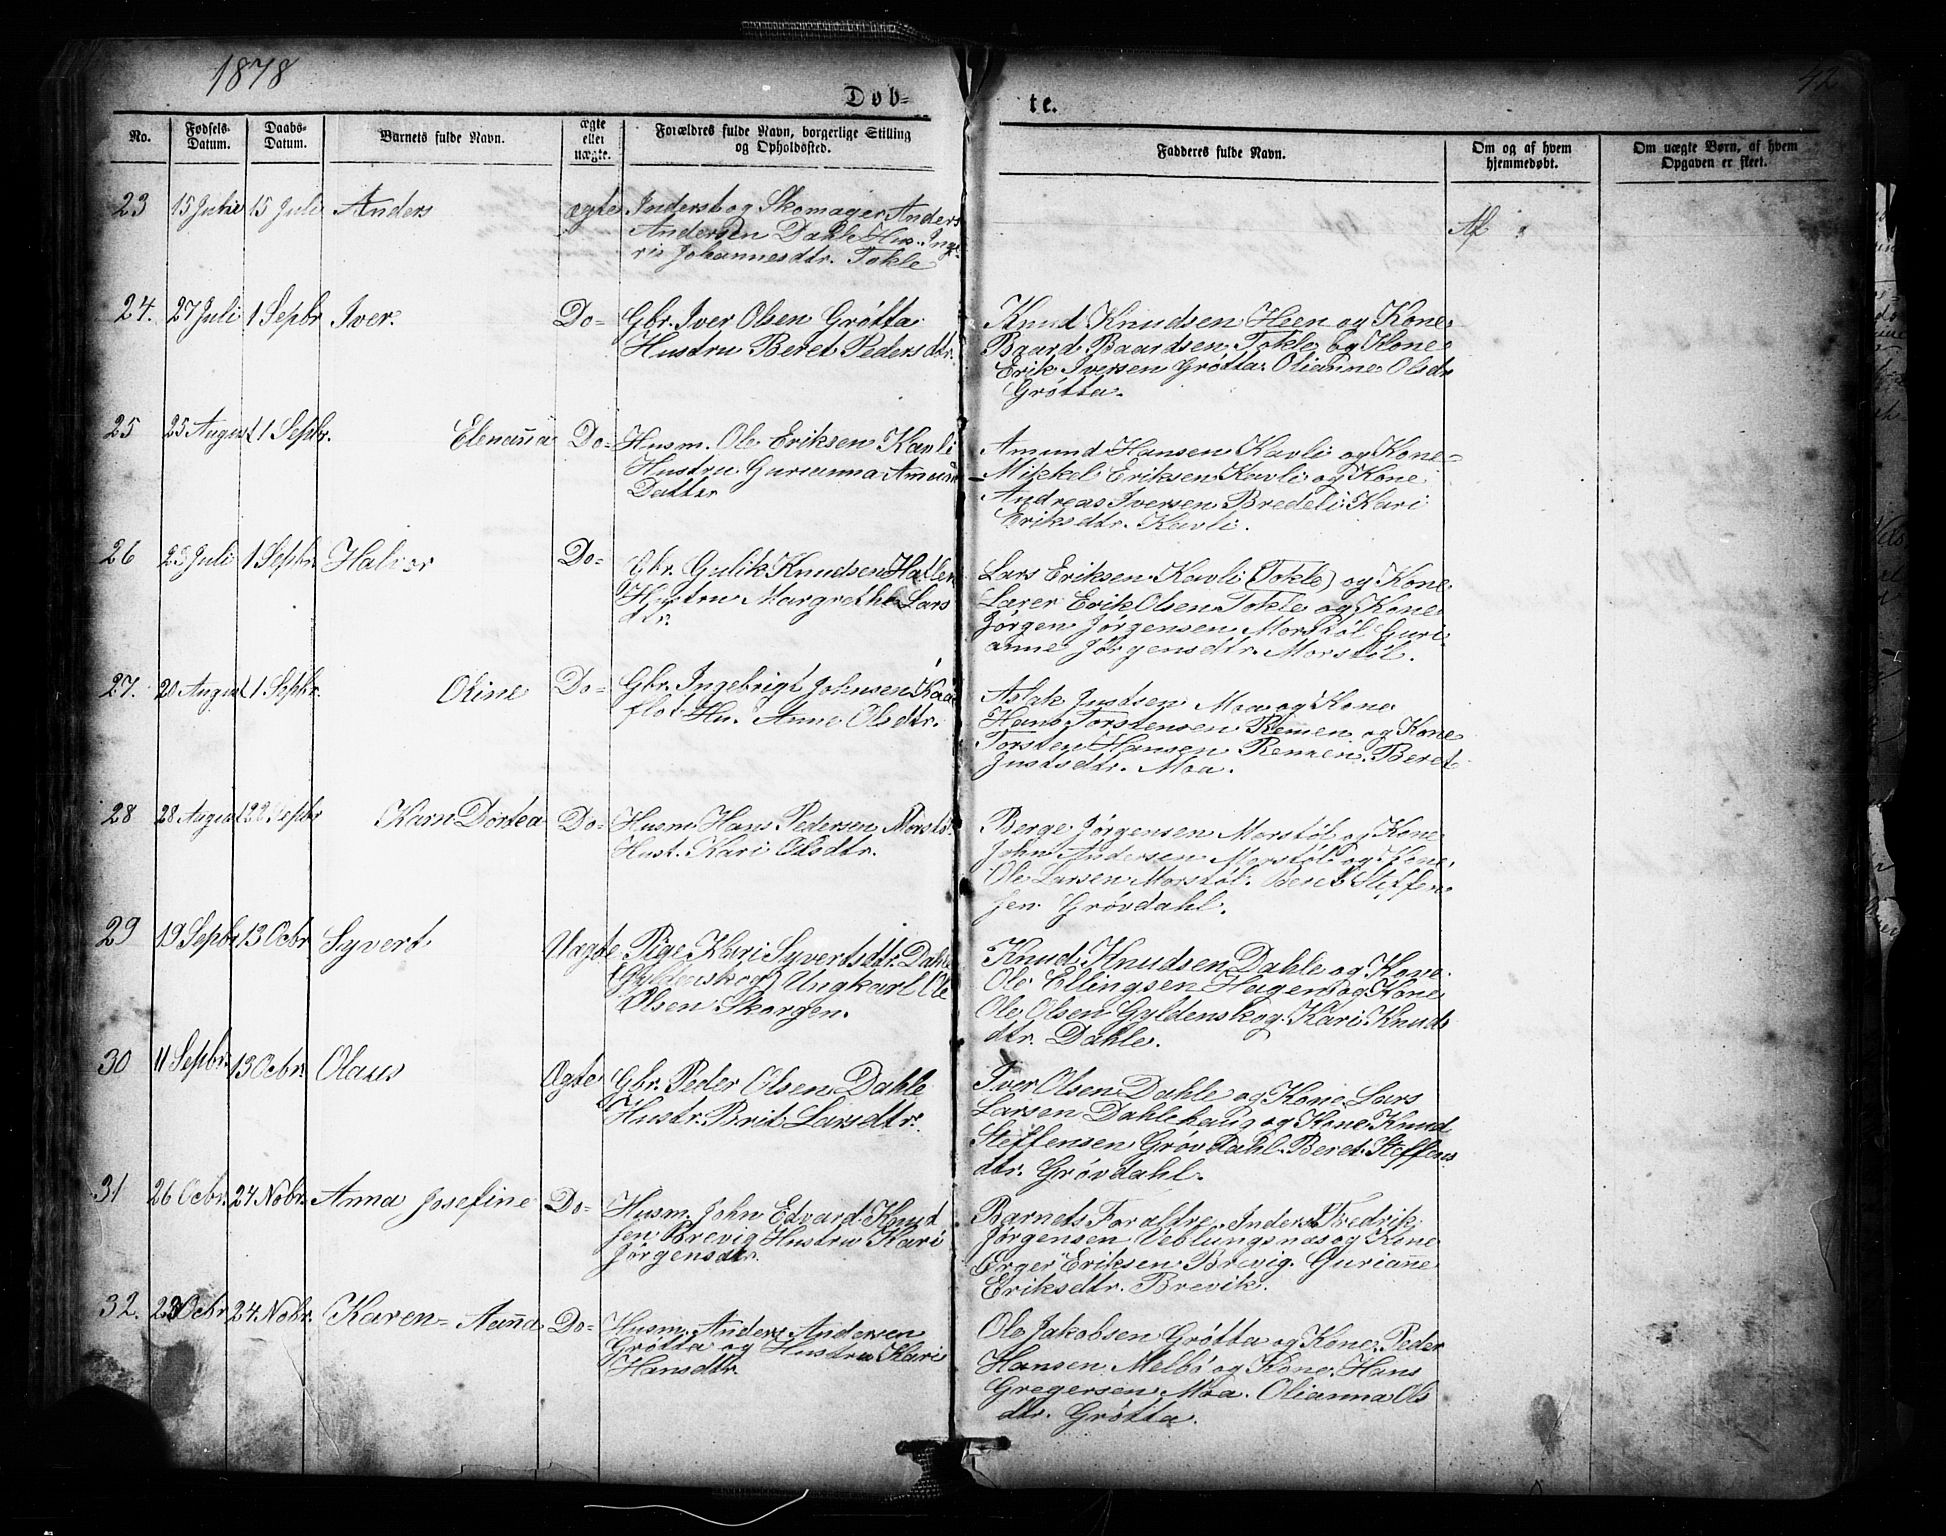 1878
42
Døb=
te.
No.
Fødsels-
Datum.
Daabs-
Datum.
Barnets fulde Navn.
ægte
eller
uægte.
Forældres fulde Navn, borgerlige Stilling
og Opholdssted.
Fadderes fulde Navn.
Om og af hvem
hjemmedøbt.
Om uægte Børn, af hvem
Opgaven er skeet.
23 15 Julie 15 Juli Anders ægte Inderst og Skomager Anders
Andersen Dahle Hus. Inge
ris Johannesdtr. Tokle
Af
24. 27 Juli 1 Sepbr Iver. Do= Gbr. Iver Olsen Grøtta
Hustru Beret Pedersdtr.
Knud Knudsen Heen og Kone
Baard Baardsen Tokle og Kone
Erik Iversen Grøtta. Olianne Olsdtr
Grøtta.
25 25 August 1 Sepbr. Elenanna Do= Husm. Ole Eriksen Kavli
Hustru Gurianna Amund
Datter
Amund Hansen Kavli og Kone=
Mikkel Eriksen Kavli og Kone
Andreas Iversen Bredeli. Kari
Eriksdtr. Kavli.
26 23 Juli 1 Sepbr. Halvor Do= Gbr. Gulik Knudsen
Hustru Margrethe Lars
dtr.
Lars Eriksen Kavli (Tokle) og Kone
Lærer Erik Olsen Tokle og Kone
Jørgen Jørgensen Morstøl Guri
anne Jørgensdtr. Morstøl.
27. 20 August 1 Sepbr. Oline Do= Gbr. Ingebrigt Johnsen
flot Hu. Anne Olsdtr.
Aslak Justsen Moa og Kone
Hans Torstensen Remen og Kone
Torsten Hansen Remen. Beret
Justsdtr. Moa.
28 28 August 22 Sepbr Karn Dortea Do= Husm. Hans Pedersen Morstøl
Hust. Kari Olsdtr.
Berge Jørgensen Morstøl og Kone
John Andersen Morstøl og Kone.
Ole Larsen Morstøl. Beret Steffen
sen Grøvdahl.
29 19 Sepbr 13 Ocbr Syvert Uægte Pige Kari Syvertsdtr. Dahle
(Gyldenskog) Ungkarl Ole
Olsen Skorgen.
Knud Knudsen Dahle og Kone
Ole Ellingsen Hagen og Kone
Ole Olsen Gyldenskog. Kari Knuds
dtr. Dahle.
30 11 Sepbr. 13 Ocbr. Olaus Ægte Gbr. Peder Olsen Dahle
Hustr. Brit Larsdtr.
Iver Olsen Dahle og Kone Lars
Larsen Dahlehaug og Kone. Knud
Steffensen Grøvdahl. Beret Steffens
dtr. Grøvdahl.
31 26 Ocbr. 24 Nobr. Anna Josefine Do= Husm. John Edvard Knud
sen Brevig Hustru Kari
Jørgensdtr.
Barnets Forældre. Inderst Fredrik
Jørgensen Veblungsnæs og Kone
Erger Eriksen Brevig. Gurianne
Eriksdtr. Brevik.
32. 23 Ocbr 24 Nobr. Karen= Aanna Do= Husm. Anders Andersen
Grøtta og Hustru Kari
Hansdtr.
Ole Jakobsen Grøtta og Kone. Peder
Hansen Melbø og Kone. Hans
Gregersen Moa. Olianna Ols
dtr. Grøtta.